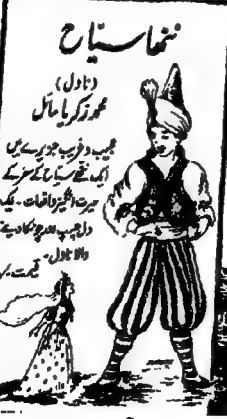 ننھا سیّاح
(ناول)
محمد زکریا مائل
عجیب و غریب جزیرے میں
ایک ننھے سیاح کے سفر کے
حیرت انگیز واقعات۔ ایک
دلچسپ اور چونکا دینے
والا ناول۔
قیمت